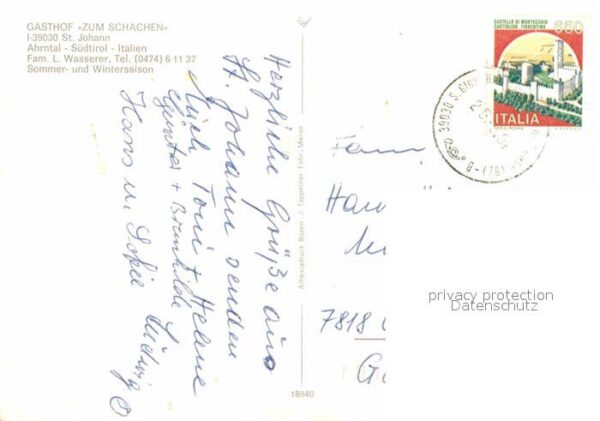 GASTHOF «ZUM SCHACHEN»
I-39030 St. Johann
Ahrntal - Südtirol - Italien
Fam. L. Wasserer, Tel. (0474) 6 11 37
Sommer- und Wintersaison
Herzliche Grüße aus
St. Johann senden
Toni + Helene
Günter + Brunhilde
Hans u. Sofie Ludwig
Athesiadruck Bozen J. Tappeiner Foto, Meran
18940
CASTELLO DI MONTECCHIO
CASTIGLION FIORENTINO
650
ITALIA
39030 S. GIOV
(BZ)
Fam
Han
7818
privacy protection
Datenschutz